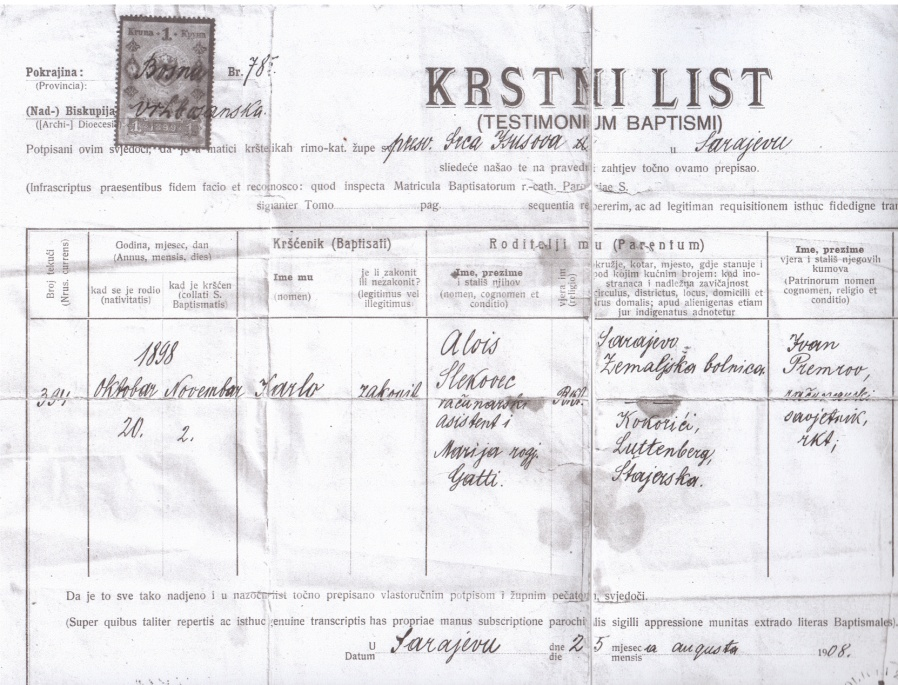 Kruna 1 Круна
Pokrajina: Bosna Br. 785
(Provincia):
(Nad-) Biskupija vrhbosanska.
([Archi-] Dioecesis
KRSTNI LIST
(TESTIMONIUM BAPTISMI)
Potpisani ovim svjedoči, da je iz matici krštenikah rimo-kat. župe presv. Srca Isusova u Sarajevu
sljedeće našao te na pravedni zahtjev točno ovamo prepisao.
(Infrascriptus praesentibus fidem facio et recognosco: quod inspecta Matricula Baptisatorum r.-cath. Parochiae S.
signanter Tomo pag. sequentia repererim, ac ad legitiman requisitionem isthuc fidedigne
Broj tekući
(Nrus. currens)
Godina, mjesec, dan
(Annus, mensis, dies)
kad se je rodio
(nativitatis)
kad je kršćen
(collati S.
Baptismatis)
Kršćenik (Baptisati)
Ime mu
(nomen)
je li zakonit
ili nezakonit?
(legitimus vel
illegitimus
Roditelji mu (Parentum)
Ime, prezime
i stališ njihov
(nomen, cognomen et
conditio)
vjera im
(religio)
okružje, kotar, mjesto, gdje stanuje i
pod kojim kućnim brojem: kod ino-
stranaca i nadležna zavičajnost
circulus, districtus, locus, domicilii et
nrus domalis; apud alienigenas etiam
jur indigenatus adnotetur
Ime, prezime
vjera i stališ njegovih
kumova
(Patrinorum nomen
cognomen, religio et
conditio)
394
1898
Oktobar Novembar
20. 2.
Karlo
zakonit
Alois
Slekovec
računarski
asistent i
Marija rogj.
Gatti.
Rkt.
Sarajevo
Zemaljska bolnica
Kokorići,
Luttenberg,
Štajerska.
Ivan
Premrov,
računarski
savjetnik,
rkt;
Da je to sve tako nadjeno i u nazočni list točno prepisano vlastoručnim potpisom i župnim pečatom, svjedoči.
(Super quibus taliter repertis ac isthuc genuine transcriptis has propriae manus subscriptione parochialis sigilli appressione munitas extrado literas Baptismales).
U Sarajevu dne 25 mjeseca augusta 1908.
Datum die mensis